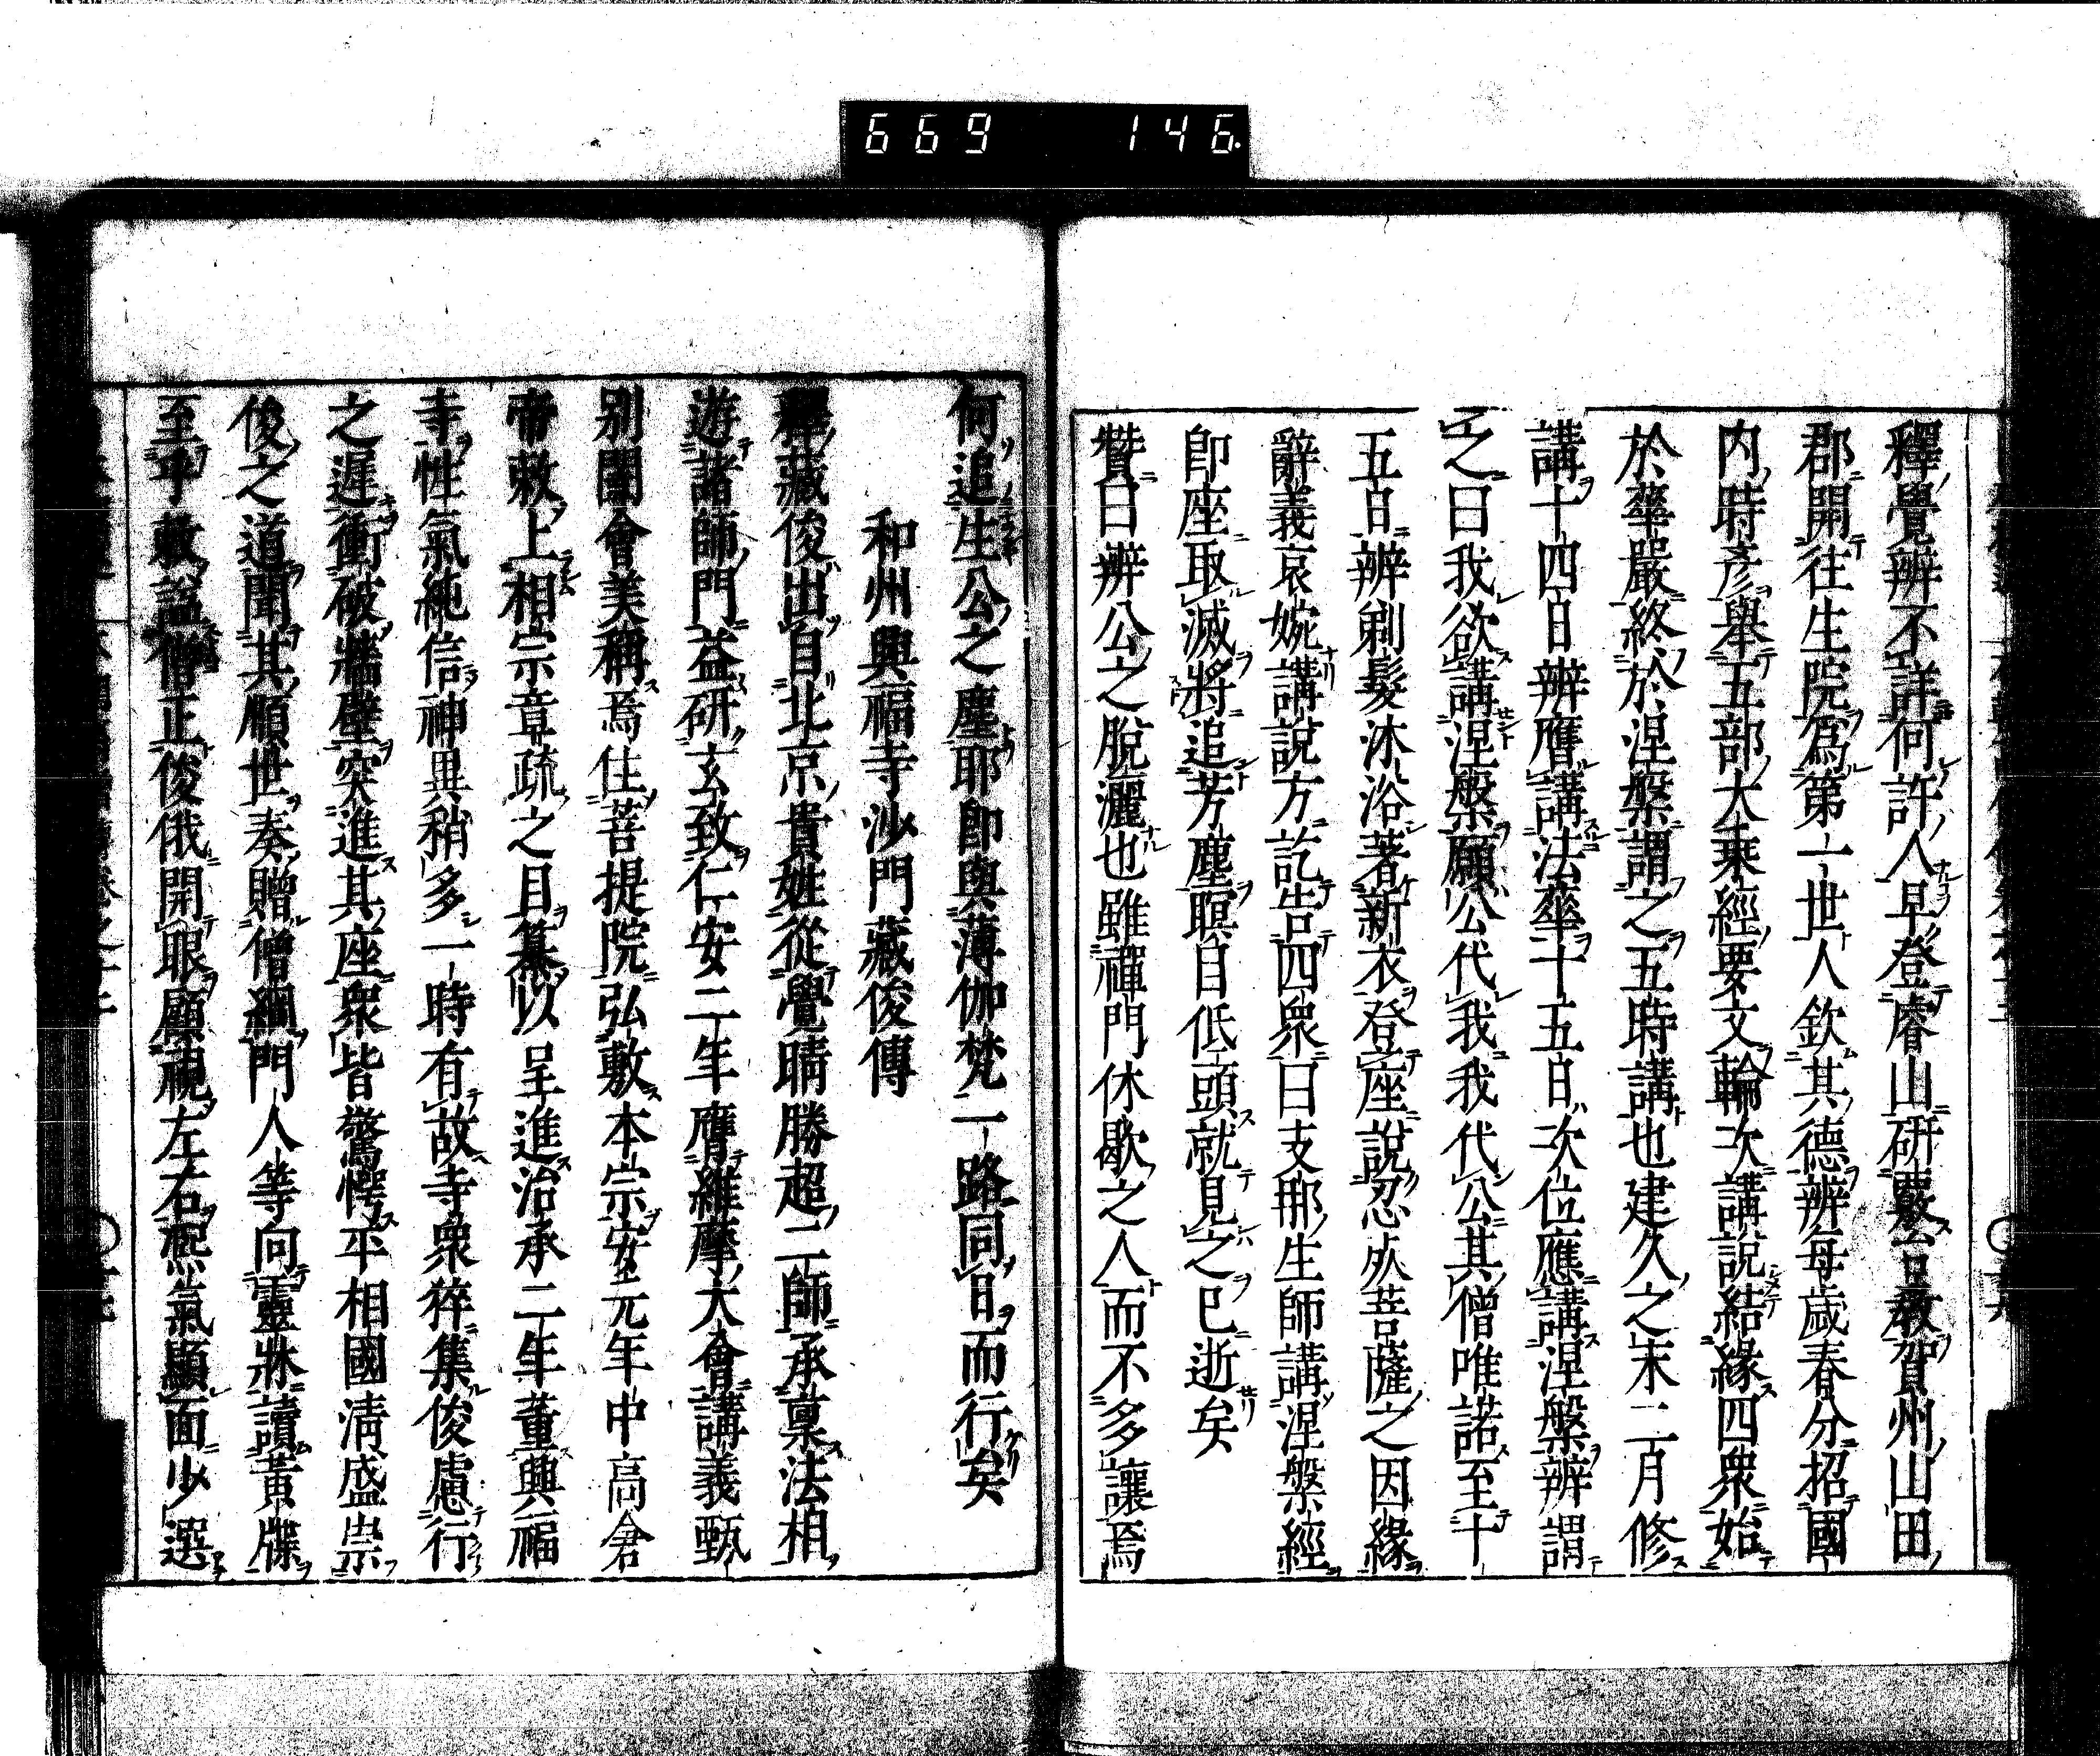 669 146.
釋覺辨不詳何許人早登睿山研覈台教賀州山田
郡開往生院爲第一世人欽其德辨每歲春分招國
内時彥舉五部大乘經要文輪次講說結緣四衆始
於華嚴終於涅槃謂之五時講也建久之末二月修
講十四日辨膺講法華十五日次位應講涅槃辨謂
之曰我欲講涅槃願公代我我代公其僧唯諾至十
五日辨剃髮沐浴著新衣登座說忍灰菩薩之因緣
辭義哀婉講說方訖告四衆曰支那生師講涅槃經
即座取滅將追芳塵瞑目低頭就見之已逝矣
贊曰辨公之脫灑也雖禪門休歇之人而不多讓焉
何追生公之塵耶即與薄伽梵一路同日而行矣
和州興福寺沙門藏俊傳
釋藏俊出自北京貴姓從覺晴勝超二師承稟法相
遊諸師門益研玄致仁安二年膺維摩大會講義甄
別闔會美稱焉住菩提院弘敷本宗安元年中高倉
帝敕上相宗章疏之目纂以呈進治承二年董興福
寺性氣純信神異稍多一時有故寺衆猝集俊慮行
之遲衝破牆壁突進其座衆皆驚愕平相國淸盛崇
俊之道聞其順世奏贈僧綱門人等向靈牀讀黃牒
至乎敕謚僧正俊俄開眼顧視左右熙氣顯面少選